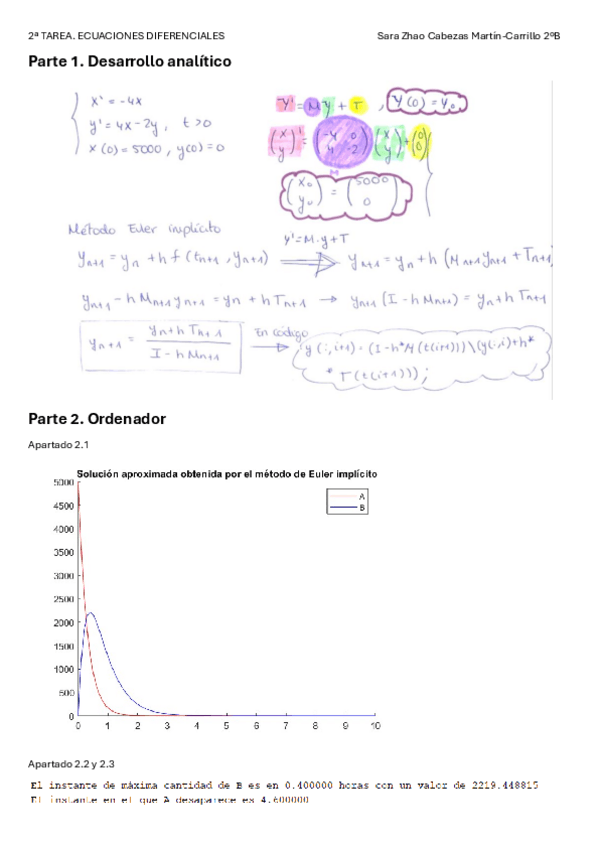 2ª TAREA. ECUACIONES DIFERENCIALES Sara Zhao Cabezas Martín-Carrillo 2ºB
Parte 1. Desarrollo analítico
x' = -4x
y' = 4x - 2y, t > 0
x(0) = 5000, y(0) = 0
Y' = M y + T , Y(0) = Y₀
(x y)' = (-4 0 4 -2) (x y) + (0 0)
M
(x₀ y₀) = (5000 0)
Método Euler implícito
y'=M·y+T
yₙ₊₁ = yₙ + h f(tₙ₊₁, yₙ₊₁) ⟹ yₙ₊₁ = yₙ + h (Mₙ₊₁yₙ₊₁ + Tₙ₊₁
yₙ₊₁ - h Mₙ₊₁yₙ₊₁ = yₙ + h Tₙ₊₁ → yₙ₊₁ (I - h Mₙ₊₁) = yₙ + h Tₙ₊₁
yₙ₊₁ = yₙ + h Tₙ₊₁ / I - h Mₙ₊₁
En código
y(:,i+1) = (I-h*M(t(i+1)))\(y(:,i)+h*
*T(t(i+1)));
Parte 2. Ordenador
Apartado 2.1
Solución aproximada obtenida por el método de Euler implícito
5000
4500
4000
3500
3000
2500
2000
1500
1000
500
0
A
B
0 1 2 3 4 5 6 7 8 9 10
Apartado 2.2 y 2.3
El instante de máxima cantidad de B es en 0.400000 horas con un valor de 2219.448815
El instante en el que A desaparece es 4.600000